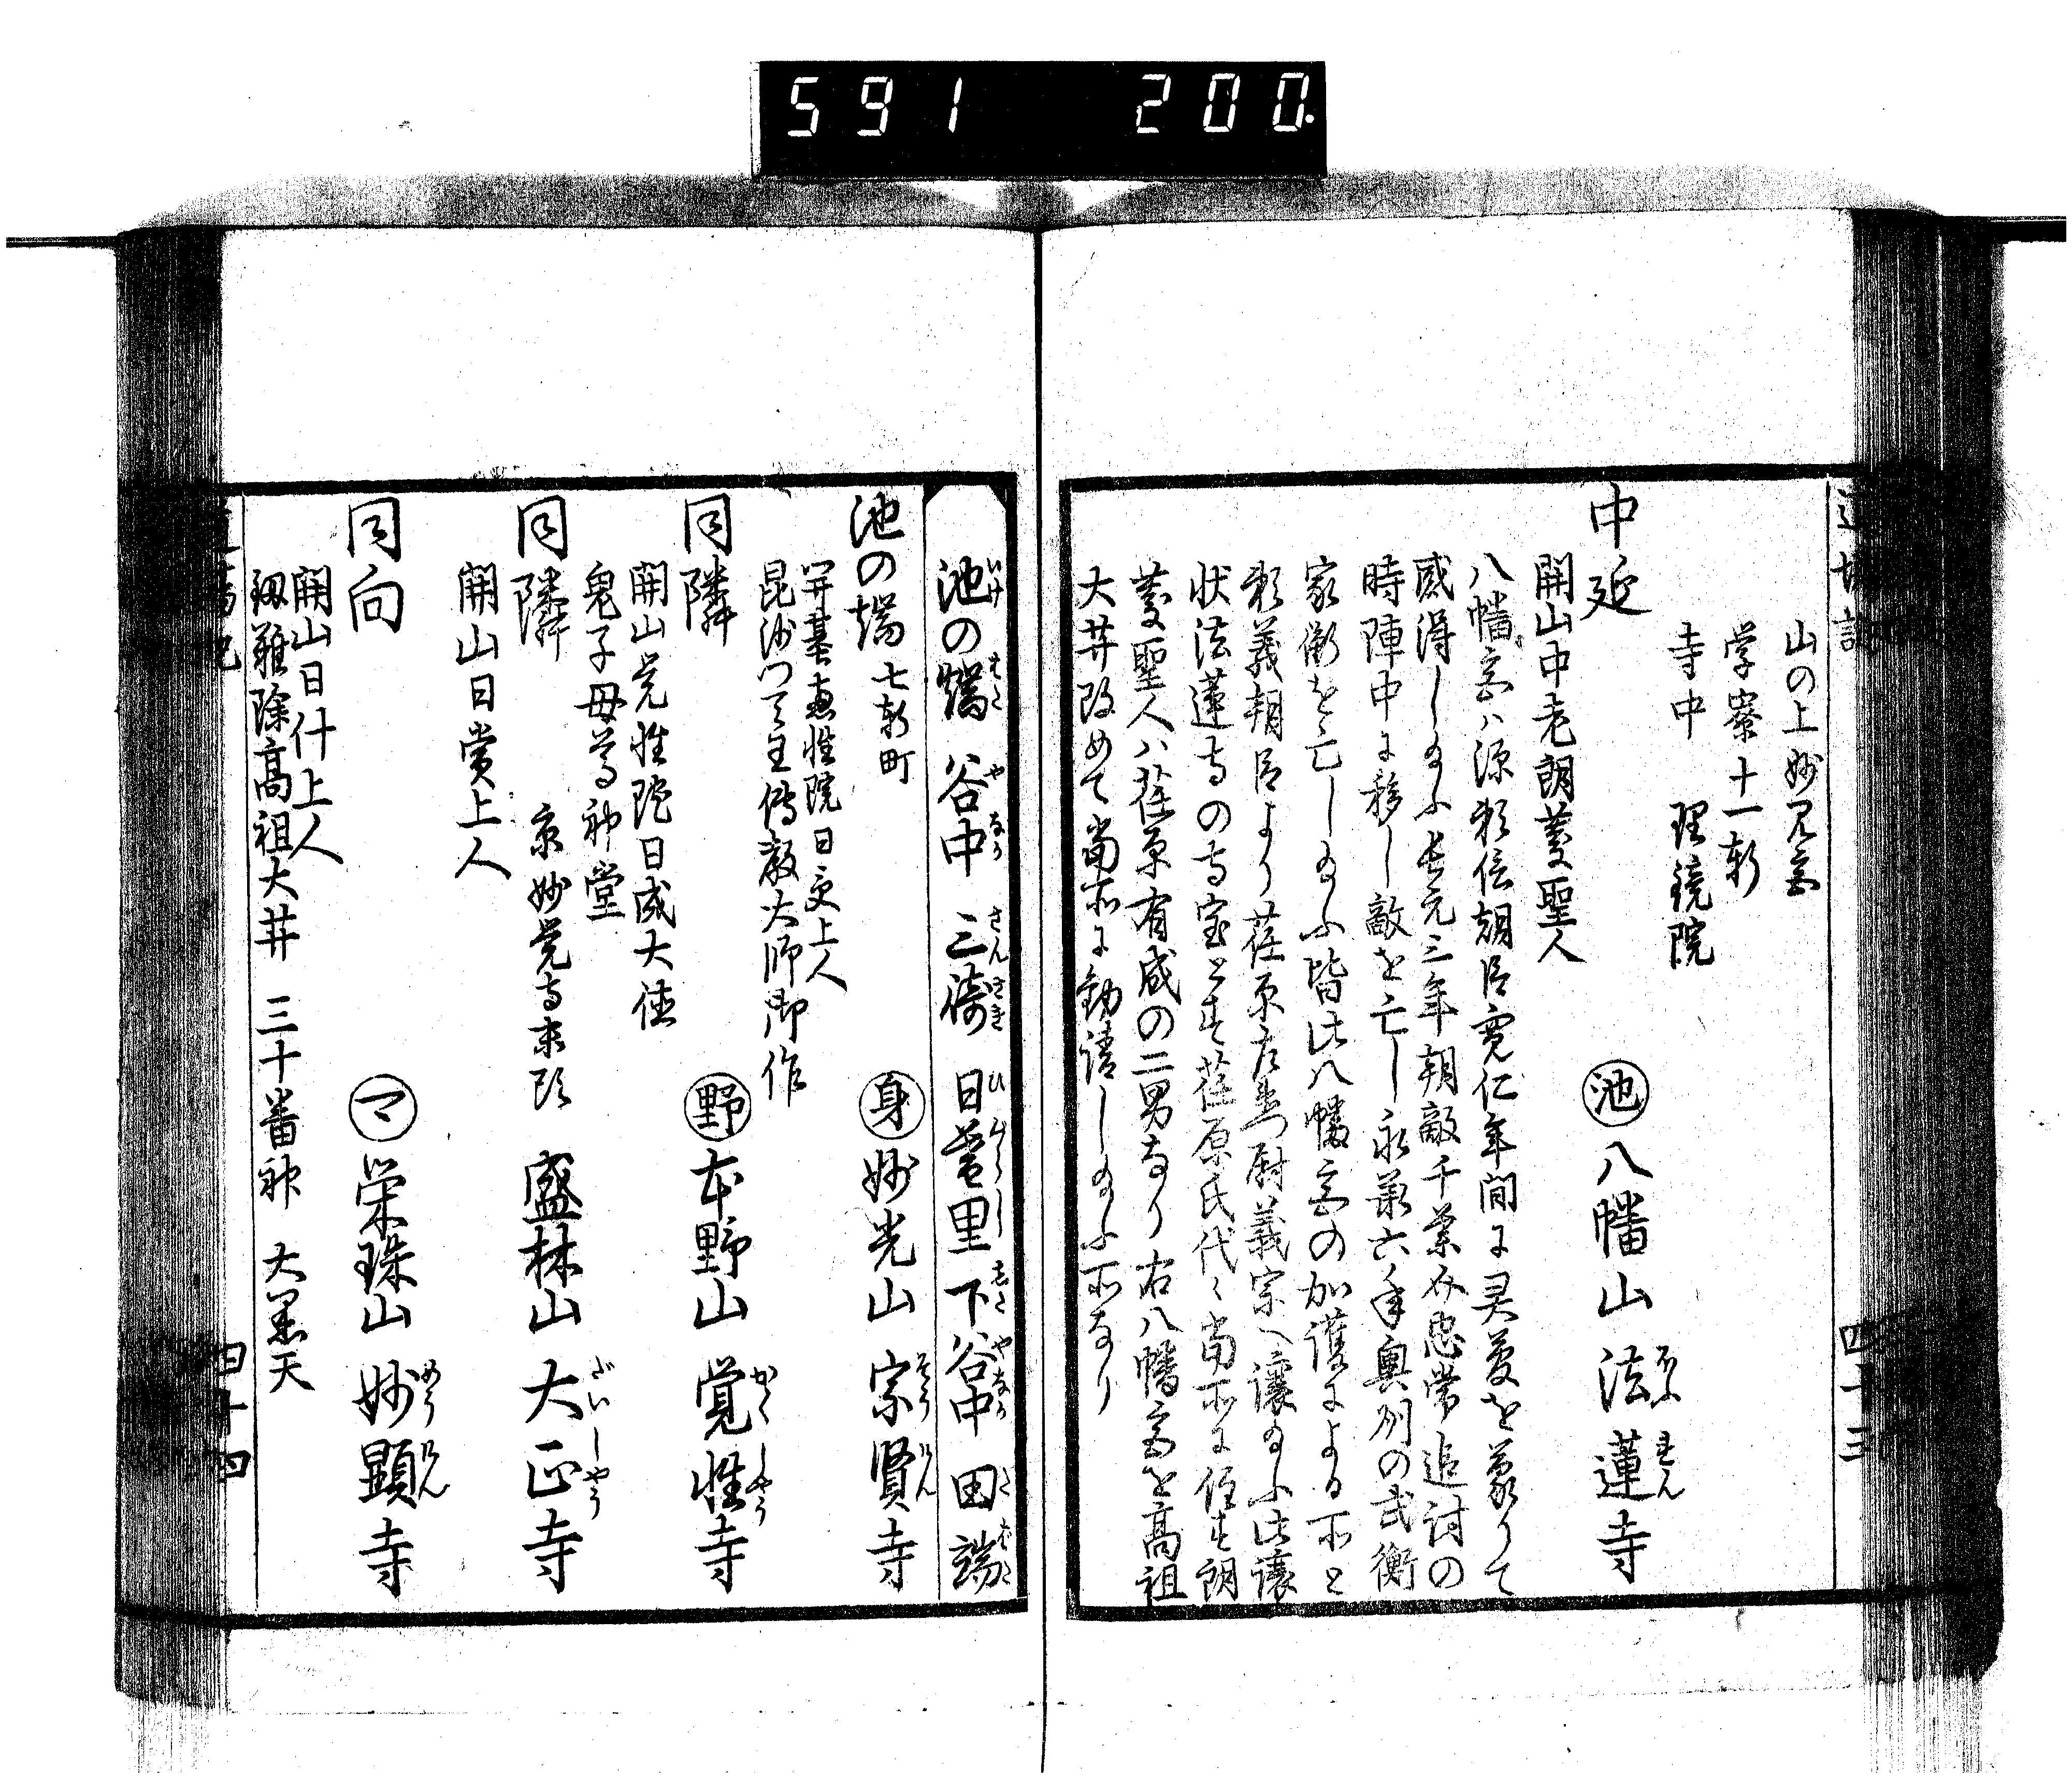 591 200
山の上妙見宮
学寮十一軒
寺中 理鏡院
中延 池 八幡山 法蓮寺
開山中老朗慶聖人
八幡宮ハ源頼信朝臣寛仁年間に灵夢を蒙りて
感得し給ふ長元三年朝敵千葉介忠常追討の
時陣中に移し敵を亡し永承六年奥州の武衡
家衡を亡し給ふ皆此八幡宮の加護による所と
頼義朝臣より荏原左衛門尉義宗へ譲給ふ此譲
状法蓮寺の寺宝とす荏原氏代々当所に住す朗
慶聖人ハ荏原有成の二男なり右八幡宮を高祖
大井改めて当所に勧請し給ふ所なり
四十三
池の端 谷中 三崎 日暮里 下谷中 田端
池の端七軒町 身 妙光山 宗賢寺
開基恵性院日更上人
毘沙門天王傳教大師御作
同隣 野 本野山 覚性寺
開山覚性院日成大徳
鬼子母尊神堂
同隣 京妙覚寺末頭 盛林山 大正寺
開山日賞上人
同向 マ 栄珠山 妙顕寺
開山日什上人
釼難除高祖大井 三十番神 大黒天
四十四